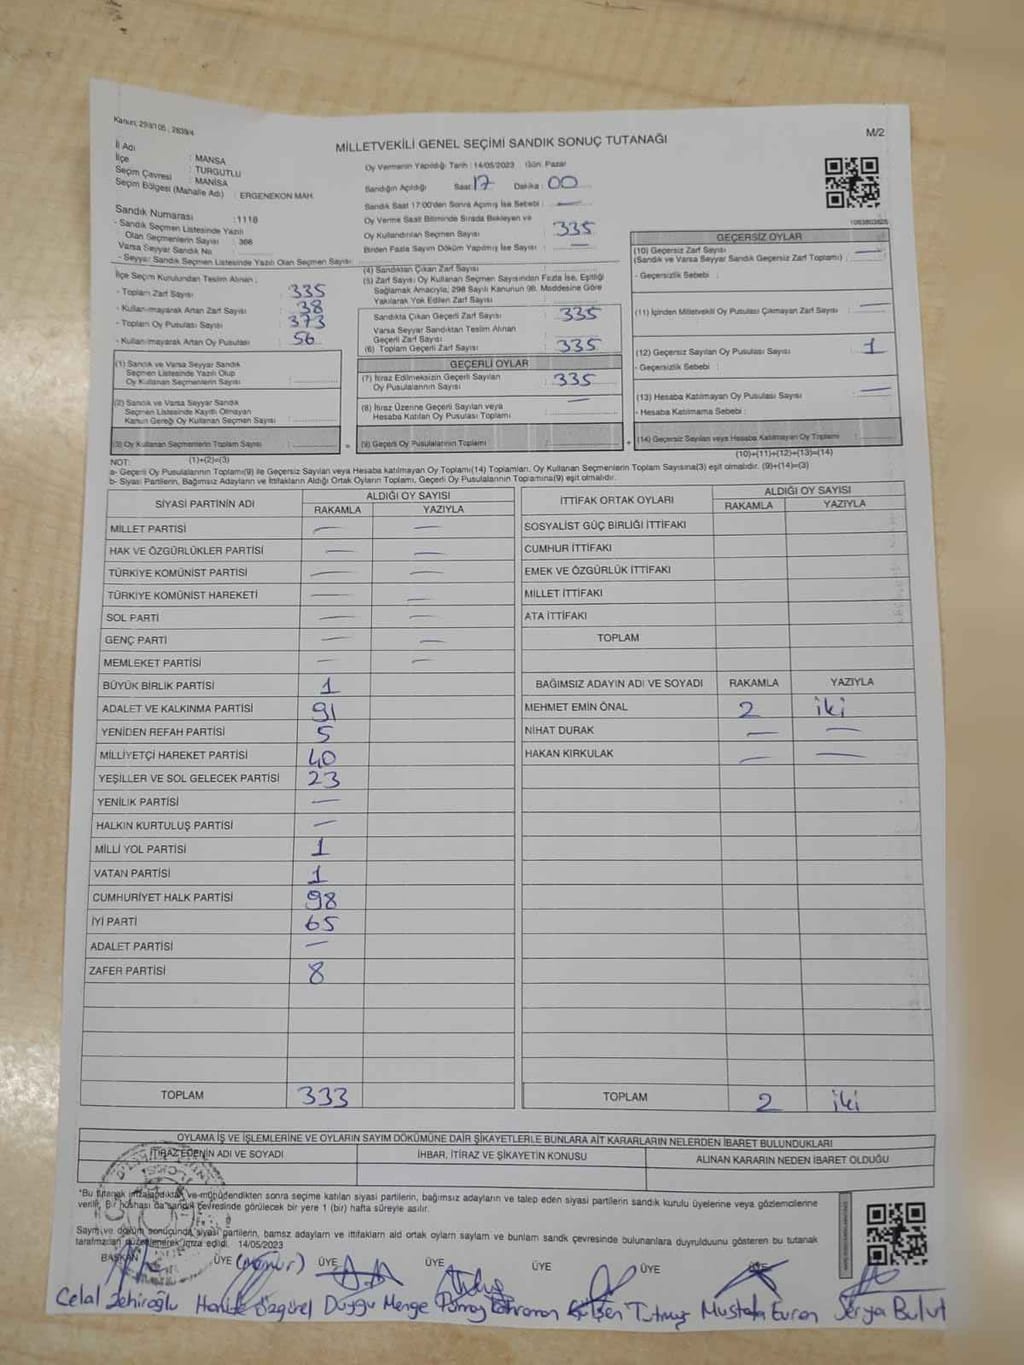 Kanun: 298/105, 2839/4
MİLLETVEKİLİ GENEL SEÇİMİ SANDIK SONUÇ TUTANAĞI
M/2
İl Adı : MANİSA
İlçe : TURGUTLU
Seçim Çevresi : MANİSA
Seçim Bölgesi (Mahalle Adı) : ERGENEKON MAH
Sandık Numarası : 1118
- Sandık Seçmen Listesinde Yazılı
Olan Seçmenlerin Sayısı
Varsa Seyyar Sandık No
- Seyyar Sandık Seçmen Listesinde Yazılı Olan Seçmen Sayısı
Oy Vermenin Yapıldığı Tarih : 14/05/2023 Gün: Pazar
Sandığın Açıldığı Saat: 17 Dakika : 00
Sandık Saat 17:00'den Sonra Açılmış İse Sebebi : —
Oy Verme Saati Bitiminde Sırada Bekleyen ve
Oy Kullandırılan Seçmen Sayısı : 335
Birden Fazla Sayım Döküm Yapılmış İse Sayısı : —
İlçe Seçim Kurulundan Teslim Alınan ;
- Toplam Zarf Sayısı : 335
- Kullanılmayarak Artan Zarf Sayısı : 38
- Toplam Oy Pusulası Sayısı : 373
- Kullanılmayarak Artan Oy Pusulası : 56
(1) Sandık ve Varsa Seyyar Sandık
Seçmen Listesinde Yazılı Olup
Oy Kullanan Seçmenlerin Sayısı :
(2) Sandık ve Varsa Seyyar Sandık
Seçmen Listesinde Kayıtlı Olmayan
Kanun Gereği Oy Kullanan Seçmen Sayısı :
(3) Oy Kullanan Seçmenlerin Toplam Sayısı :
(1)+(2)=(3)
(4) Sandıktan Çıkan Zarf Sayısı :
(5) Zarf Sayısı Oy Kullanan Seçmen Sayısından Fazla İse, Eşitliği
Sağlamak Amacıyla, 298 Sayılı Kanunun 98. Maddesine Göre
Yakılarak Yok Edilen Zarf Sayısı
Sandıkta Çıkan Geçerli Zarf Sayısı : 335
Varsa Seyyar Sandıktan Teslim Alınan
Geçerli Zarf Sayısı :
(6) Toplam Geçerli Zarf Sayısı : 335
GEÇERLİ OYLAR
(7) İtiraz Edilmeksizin Geçerli Sayılan
Oy Pusulalarının Sayısı : 335
(8) İtiraz Üzerine Geçerli Sayılan veya
Hesaba Katılan Oy Pusulası Toplamı : —
(9) Geçerli Oy Pusulalarının Toplamı :
GEÇERSİZ OYLAR
(10) Geçersiz Zarf Sayısı
(Sandık ve Varsa Seyyar Sandık Geçersiz Zarf Toplamı) : —
- Geçersizlik Sebebi :
(11) İçinden Milletvekili Oy Pusulası Çıkmayan Zarf Sayısı : —
(12) Geçersiz Sayılan Oy Pusulası Sayısı : 1
- Geçersizlik Sebebi :
(13) Hesaba Katılmayan Oy Pusulası Sayısı : —
- Hesaba Katılmama Sebebi :
(14) Geçersiz Sayılan veya Hesaba Katılmayan Oy Toplamı :
(10)+(11)+(12)+(13)=(14)
NOT:
a- Geçerli Oy Pusulalarının Toplamı(9) ile Geçersiz Sayılan veya Hesaba katılmayan Oy Toplamı(14) Toplamları, Oy Kullanan Seçmenlerin Toplam Sayısına(3) eşit olmalıdır. (9)+(14)=(3)
b- Siyasi Partilerin, Bağımsız Adayların ve İttifakların Aldığı Ortak Oyların Toplamı, Geçerli Oy Pusulalarının Toplamına(9) eşit olmalıdır.
SİYASİ PARTİNİN ADI ALDIĞI OY SAYISI
RAKAMLA YAZIYLA
MİLLET PARTİSİ — —
HAK VE ÖZGÜRLÜKLER PARTİSİ — —
TÜRKİYE KOMÜNİST PARTİSİ — —
TÜRKİYE KOMÜNİST HAREKETİ — —
SOL PARTİ — —
GENÇ PARTİ — —
MEMLEKET PARTİSİ — —
BÜYÜK BİRLİK PARTİSİ 1
ADALET VE KALKINMA PARTİSİ 91
YENİDEN REFAH PARTİSİ 5
MİLLİYETÇİ HAREKET PARTİSİ 40
YEŞİLLER VE SOL GELECEK PARTİSİ 23
YENİLİK PARTİSİ —
HALKIN KURTULUŞ PARTİSİ —
MİLLİ YOL PARTİSİ 1
VATAN PARTİSİ 1
CUMHURİYET HALK PARTİSİ 98
İYİ PARTİ 65
ADALET PARTİSİ —
ZAFER PARTİSİ 8
TOPLAM 333
İTTİFAK ORTAK OYLARI ALDIĞI OY SAYISI
RAKAMLA YAZIYLA
SOSYALİST GÜÇ BİRLİĞİ İTTİFAKI
CUMHUR İTTİFAKI
EMEK VE ÖZGÜRLÜK İTTİFAKI
MİLLET İTTİFAKI
ATA İTTİFAKI
TOPLAM
BAĞIMSIZ ADAYIN ADI VE SOYADI RAKAMLA YAZIYLA
MEHMET EMİN ÖNAL 2 iki
NİHAT DURAK — —
HAKAN KIRKULAK — —
TOPLAM 2 iki
OYLAMA İŞ VE İŞLEMLERİNE VE OYLARIN SAYIM DÖKÜMÜNE DAİR ŞİKAYETLERLE BUNLARA AİT KARARLARIN NELERDEN İBARET BULUNDUKLARI
İTİRAZ EDENİN ADI VE SOYADI İHBAR, İTİRAZ VE ŞİKAYETİN KONUSU ALINAN KARARIN NEDEN İBARET OLDUĞU
"Bu tutanak imzalandıktan ve mühürlendikten sonra seçime katılan siyasi partilerin, bağımsız adayların ve talep eden siyasi partilerin sandık kurulu üyelerine veya gözlemcilerine
verilir. Bir nüshası da sandık çevresinde görülecek bir yere 1 (bir) hafta süreyle asılır.
14/05/2023
BAŞKAN ÜYE (memur) ÜYE ÜYE ÜYE ÜYE ÜYE
Celal Zehiroğlu Hanife Özgürel Duygu Menge Gülşen Tutmuş Mustafa Euren Serya Bulut